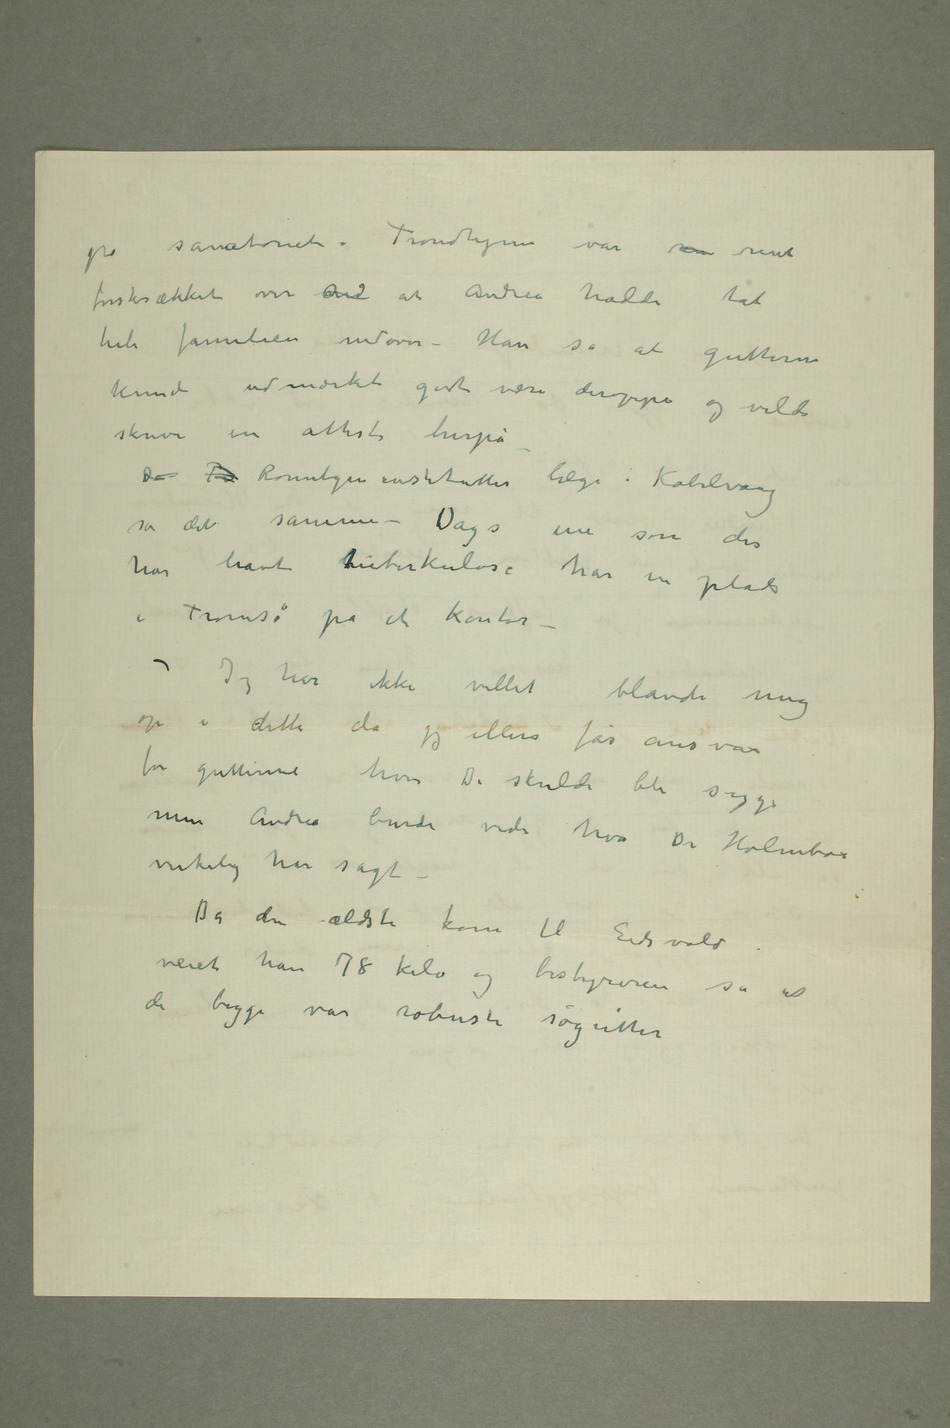 på sanatoriet. Trondhjem var rent
forskrækket over at Andrea hadde tat
hele familien nedover – Han sa at guttene
kunde udmærket godt være deroppe og vilde
skrive en attest herpå –
Da Røntgeninstituttets læge i Kabelvaag
sa det samme – Dags ene søn der
har havt tuberkulose har en plads
i Tromsø på et kontor –
– Jeg har ikke villet blande mig
op i dette da jeg ellers får ansvar
for guttene hvis De skulde bli syge
men Andrea burde vide hva Dr Holmboe
virkelig har sagt –
Da den ældste kom til Eidsvold
veiet han 78 kilo og bestyreren sa at
de begge var robuste søgutter